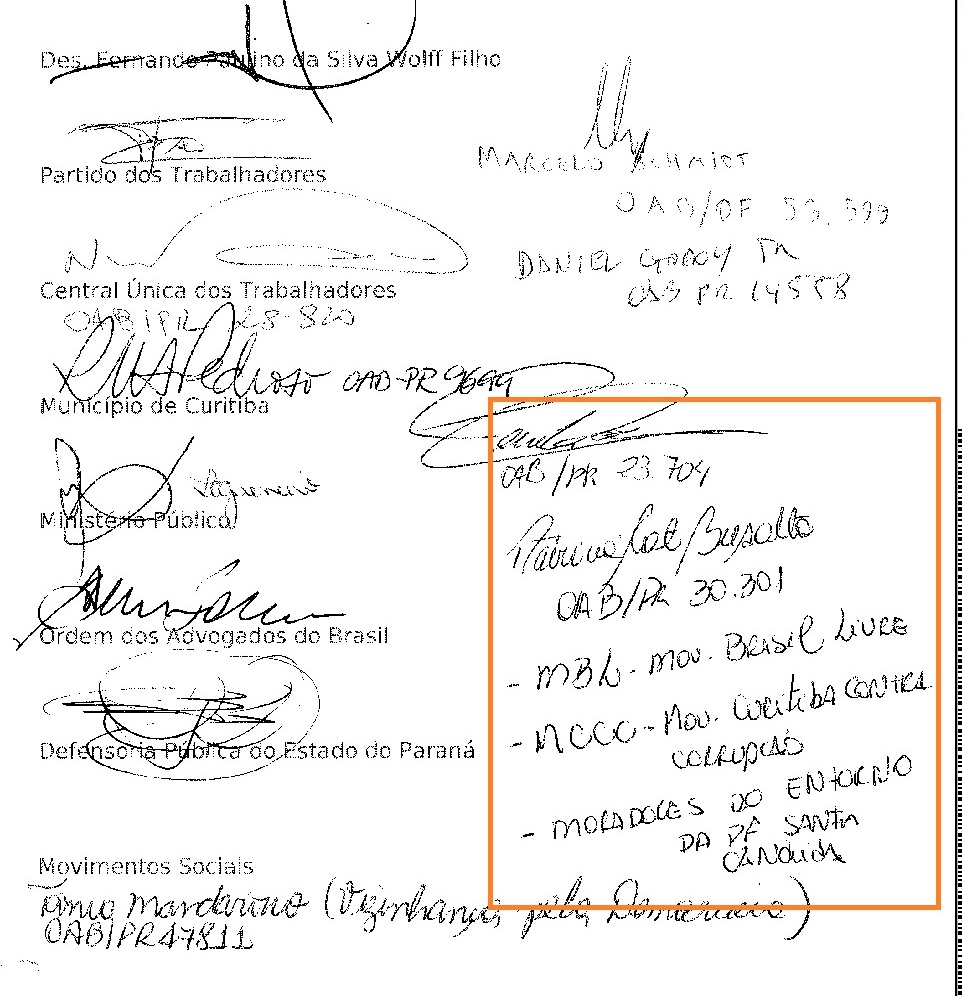 Des. Fernando Paulino da Silva Wolff Filho
Partido dos Trabalhadores
MARCELO SCHMIDT
OAB/DF 53.599
DANIEL GODOY JR
OAB PR 14558
Central Única dos Trabalhadores
OAB/PR 28-820
Pedroso OAB-PR 9699
Município de Curitiba
OAB/PR 23.704
Ministério Público
OAB/PR 30.301
Ordem dos Advogados do Brasil
- MBL - MOV. BRASIL LIVRE
- MCCC - MOV. CURITIBA CONTRA
CORRUPÇÃO
Defensoria Pública do Estado do Paraná
- MORADORES DO ENTORNO
DA PF SANTA
CÂNDIDA
Movimentos Sociais
Tânia Mandarino (Vizinhança pela Democracia)
OAB/PR 47811